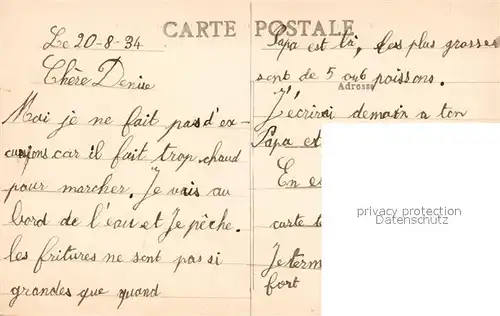 CARTE POSTALE
Le 20-8-34
Chère Denise
Moi je ne fait pas d'ex-
cursions car il fait trop chaud
pour marcher. Je vais au
bord de l'eau et Je pêche.
les fritures ne sont pas si
grandes que quand
Papa est ici, les plus grosses
sont de 5 ou 6 poissons.
Adresse
J'écrirai demain a ton
Papa et
En es
carte
Je term
fort
privacy protection
Datenschutz